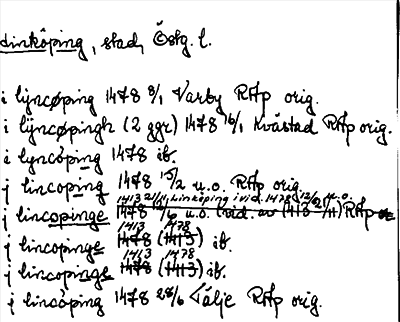 Linköping, stad, Östg. l.
i lÿncøping 1478 8/1 Varby RAp orig.
i lÿncøpingh (2 ggr) 1478 16/1 Kvästad RAp orig.
i lyncöping 1478 ib.
j lincoping 1478 15/2 u.o. RAp orig.
1413 21/11 Linköping i vid. 1478 12/6 u.o.
j lincopinge 1478 12/6 u.o. (vid. av 1413 21/11) RAp
1413 1478
j lincopinge 1478 (1413) ib.
1413 1478
j lincopinge 1478 (1413) ib.
j lincöping 1478 28/6 Tälje RAp orig.